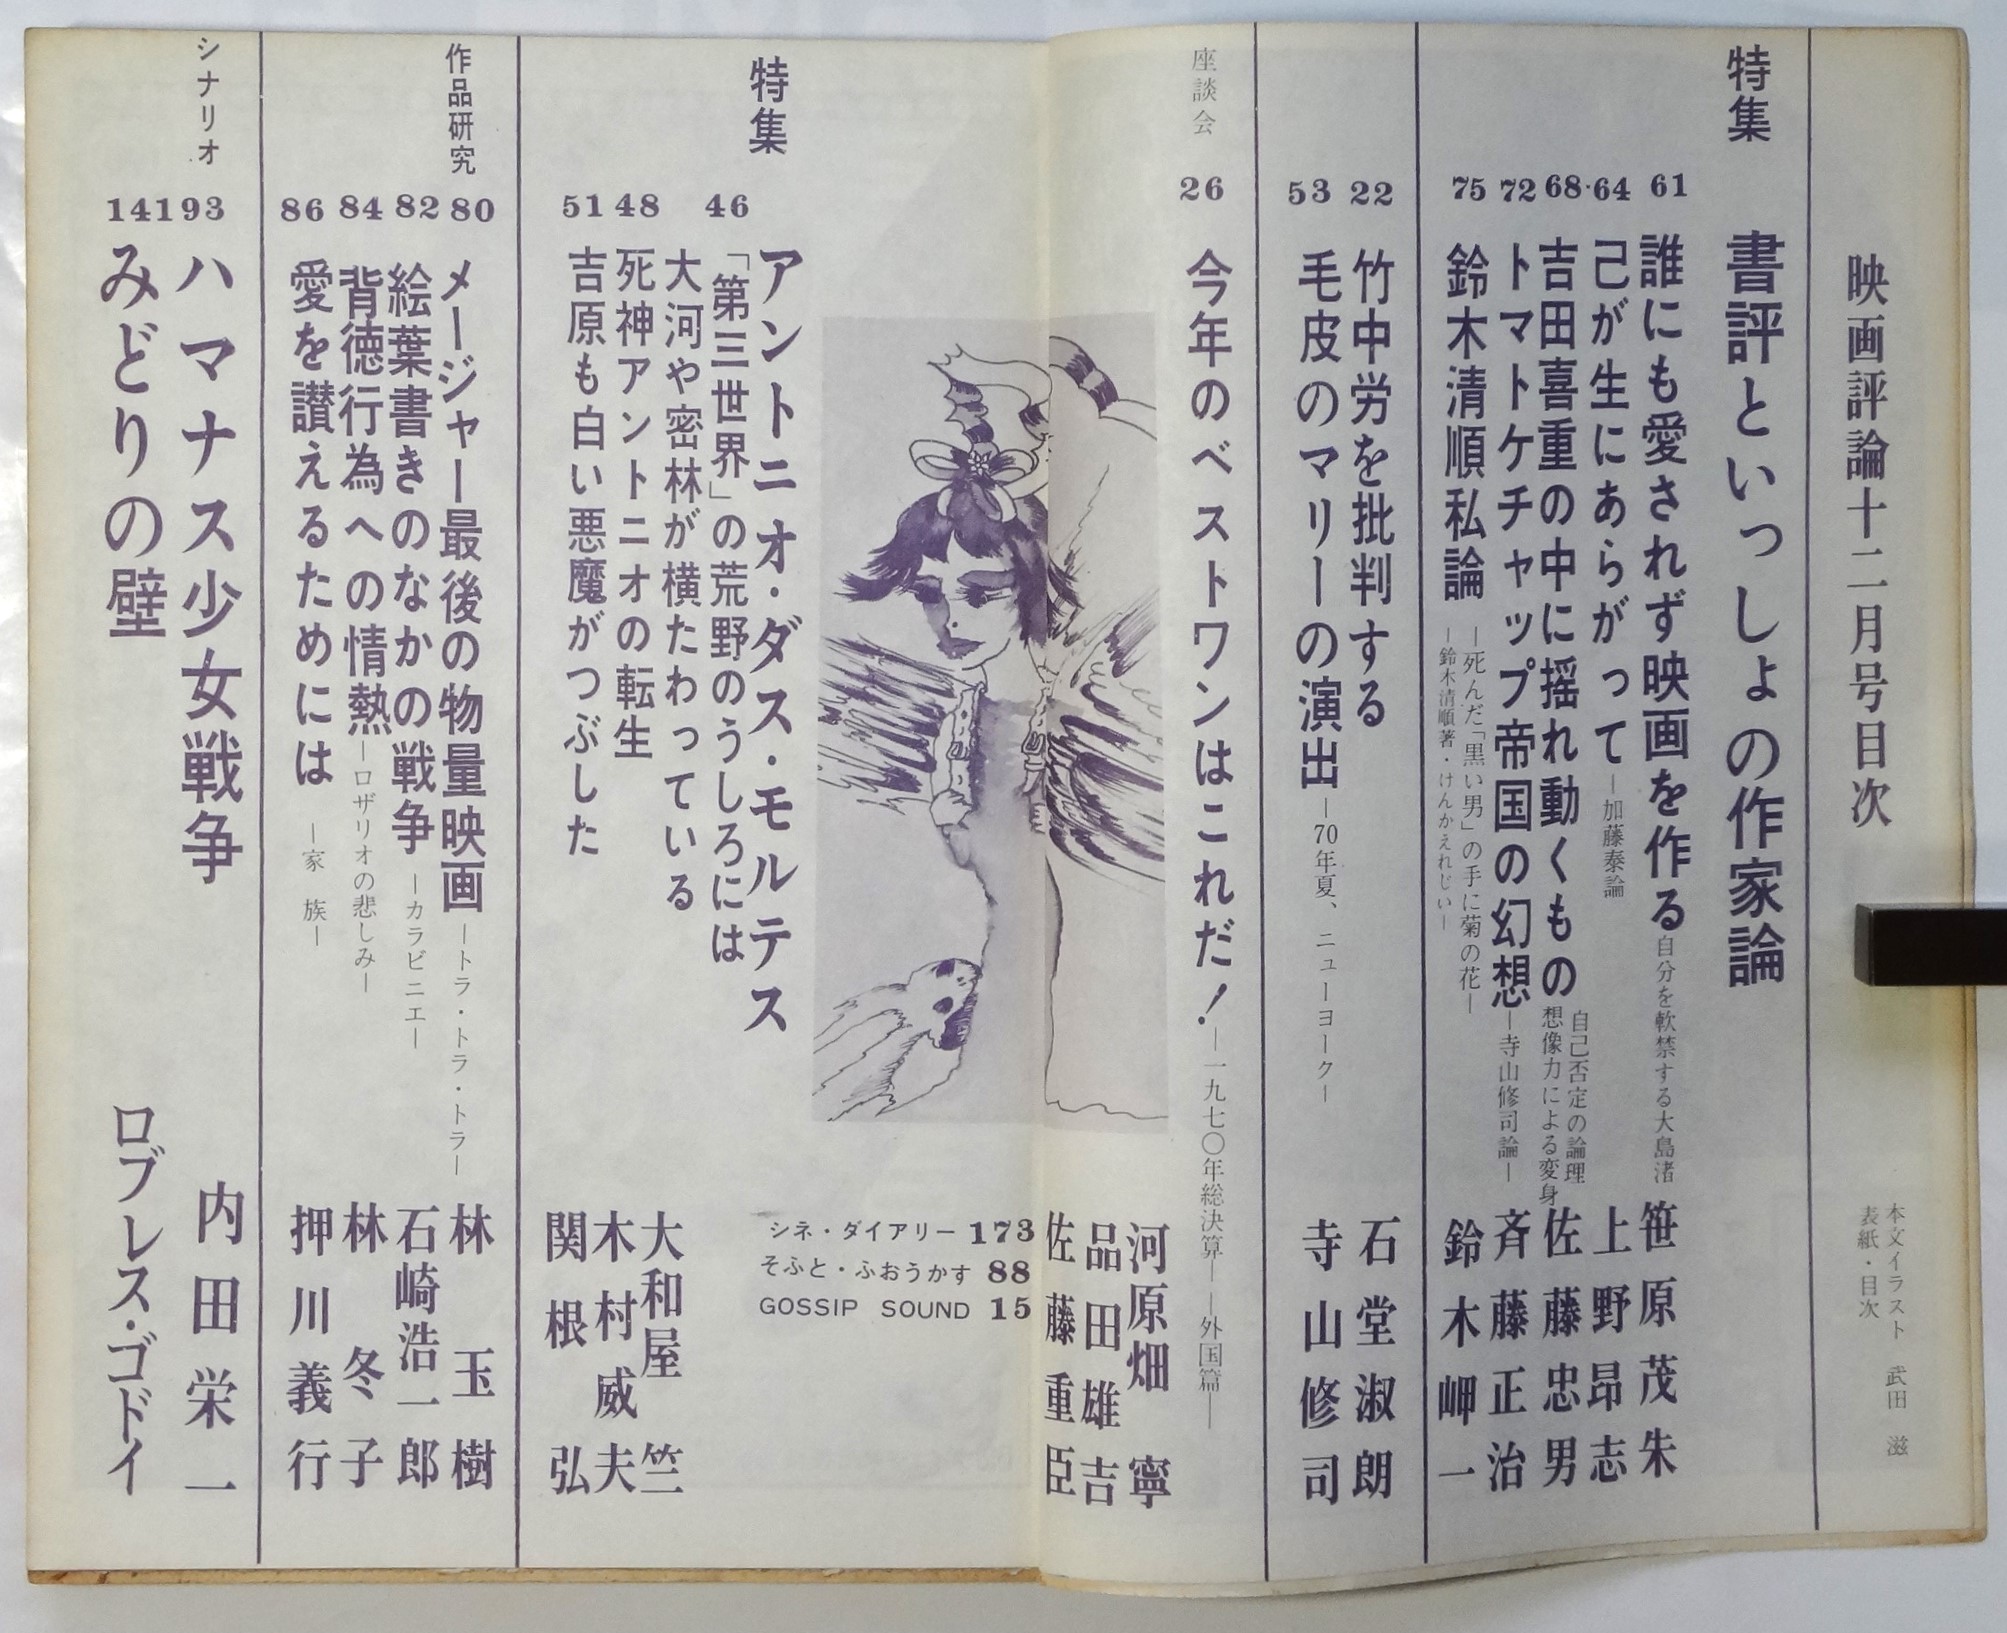 映画評論十二月号目次
本文イラスト 武田 滋
表紙・目次
特集
書評といっしょの作家論
61 誰にも愛されず映画を作る 自分を軟禁する大島渚 笹原茂朱
64 己が生にあらがって―加藤泰論 上野昂志
68 吉田喜重の中に揺れ動くもの 自己否定の論理 想像力による変身 佐藤忠男
72 トマトケチャップ帝国の幻想―寺山修司論― 斉藤正治
75 鈴木清順私論 ―死んだ「黒い男」の手に菊の花― ―鈴木清順著・けんかえれじい― 鈴木岬一
22 竹中労を批判する 石堂淑朗
53 毛皮のマリーの演出―70年夏、ニューヨーク― 寺山修司
座談会
26 今年のベストワンはこれだ!―一九七〇年総決算――外国篇――
河原畑 寧
品田雄吉
佐藤重臣
シネ・ダイアリー 173
そふと・ふおうかす 88
GOSSIP SOUND 15
特集
アントニオ・ダス・モルテス
46 「第三世界」の荒野のうしろには
大河や密林が横たわっている 大和屋 竺
48 死神アントニオの転生 木村威夫
51 吉原も白い悪魔がつぶした 関根 弘
作品研究
80 メージャー最後の物量映画―トラ・トラ・トラ― 林 玉樹
82 絵葉書きのなかの戦争―カラビニエ― 石崎浩一郎
84 背徳行為への情熱―ロザリオの悲しみ― 林 冬子
86 愛を讃えるためには ―家 族― 押川義行
シナリオ
93 ハマナス少女戦争 内田栄一
141 みどりの壁 ロブレス・ゴドイ